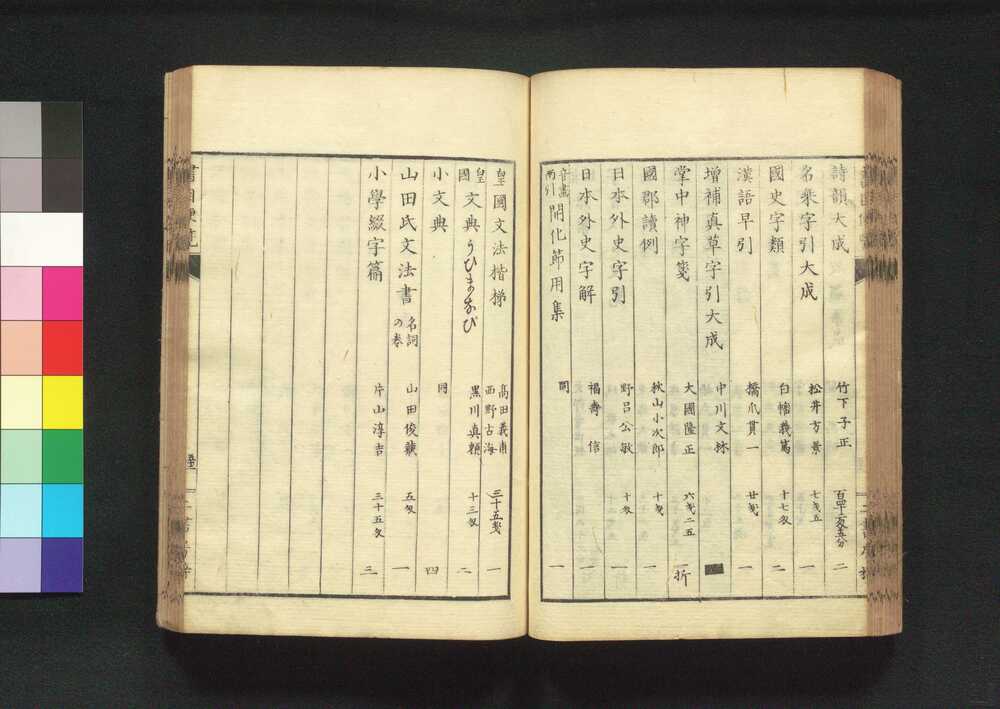 詩韻大成 竹下子正 二
名乗字引大成 松井方景 七匁五 一
國史字類 白幡義篤 十七匁 二
漢語早引 橋爪貫一 廿匁 一
増補真草字引大成 中川文林
掌中神字箋 大國隆正 六匁二五 一折
國郡讀例 秋山小次郎 十匁 一
日本外史字引 野呂公敏 十匁 一
日本外史字解 福壽信 一
音畫両引 開化節用集 同 一
皇國文法楷梯 高田義甫 西野古海 三十五匁 一
皇國文典うひまなび 黒川真頼 十三匁 二
小文典 同 四
山田氏文法書 名詞の巻 山田俊蔵 五匁 一
小學綴字篇 片山淳吉 三十五匁 三
書目便覧